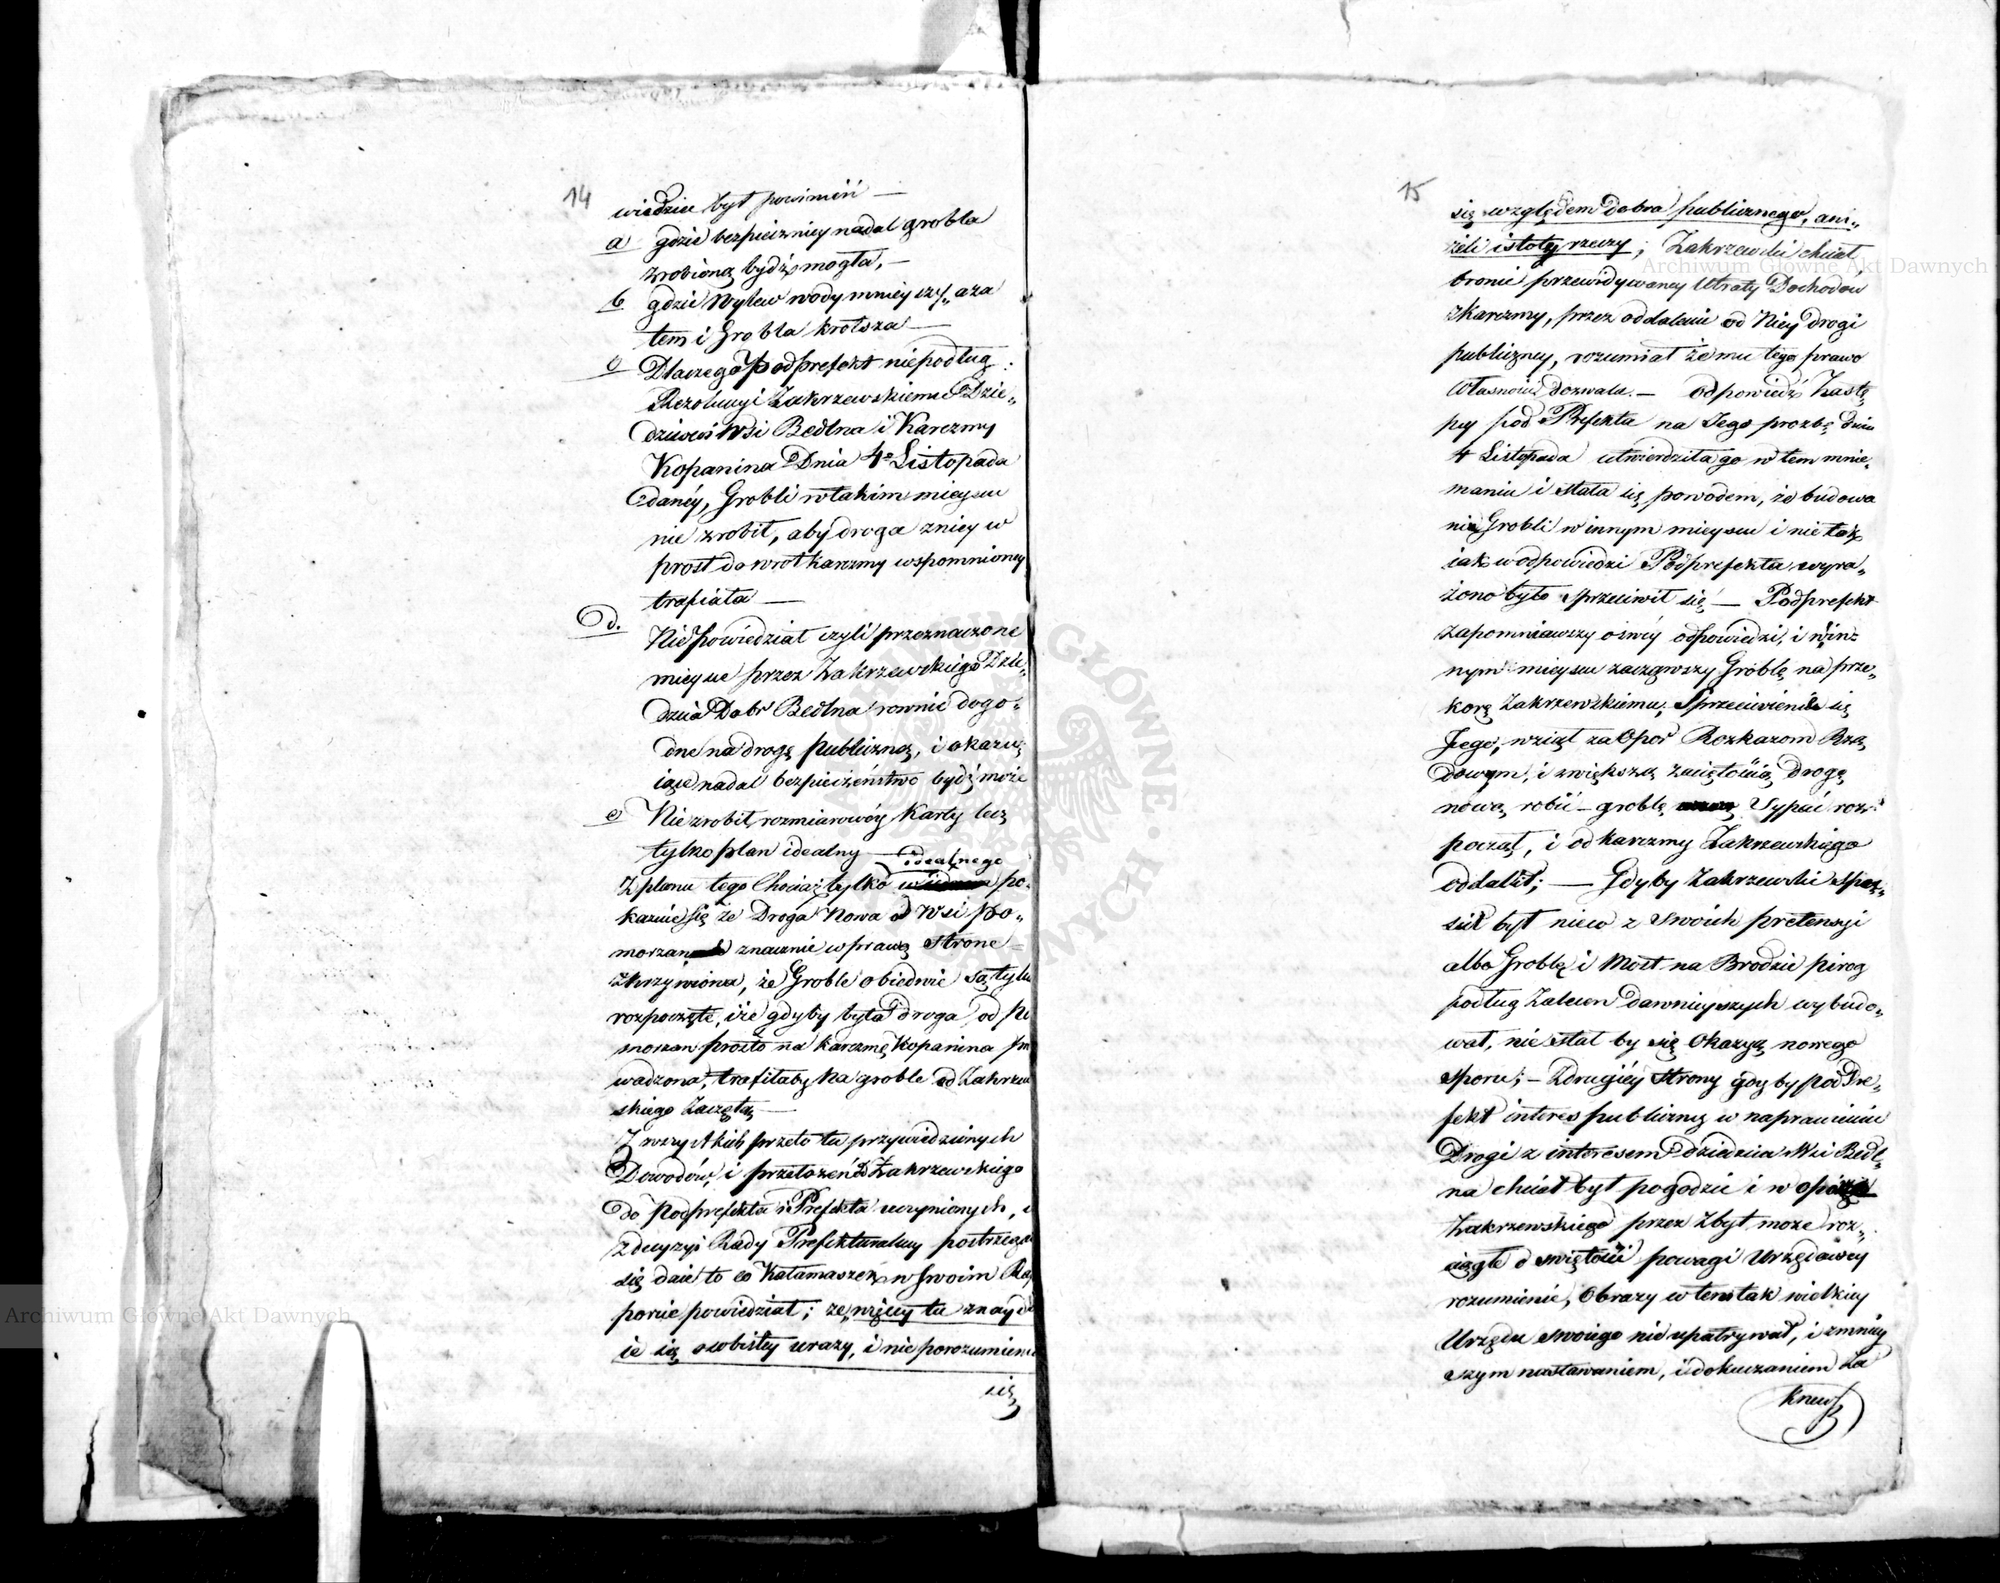 14
wiedzieć był powinień —
a gdzie bezpieczniey nadal grobla
zrobioną bydź mogła, —
b gdzie wylew wody mniey szy„ a za
tem i Grobla krotsza —
c Dlaczego Podprefekt niepodług
Rezolucyi Zakrzewskiemu Dzie„
dzicowi Wsi Bedlna i Karczmy
Kopanina Dnia 4º Listopada
daney, Grobli w takim mieyscu
nie zrobił, aby droga z niey w
prost do wrot karczmy wspomnioney
trafiała —
D. Nie powiedział czyli przeznaczone
mieysce przez Zakrzewskiego Dzie„
dzica Dobr Bedlna rownie dogo„
dne na drogę publiczną, i okazu„
iące nadal bezpieczeństwo bydź może
e Nie zrobił rozmiarowéy Karty lecz
tylko plan idealny —
idealnego
Z planu tego Chociaż tylko po„
kazuie się że Droga Nowa od Wsi Po„
morzan znacznie w prawą stronę
skrzywiona, że Groble obiedwie są tylko
rozpoczęte, iże gdyby była droga od Po
morzan prosto na karczmę Kopanina pro
wadzona, trafiłaby na groble od Zakrzew
skiego Zaczętą —
Z wszystkich przeto tu przywiedzionych
Dowodów, i przełożeń Zakrzewskiego
do Podprefekta i Prefekta uczynionych, i
z decyzyi Rady Prefekturalney postrzegać
się daie to co Kałamaszek w swoim Rap
porcie powiedział; że więcey tu znaydu
ie się osobistey urazy, i nieporozumienia
się
15
się względem dobra publicznego, ani„
żeli istoty rzeczy; Zakrzewski chciał
bronić przewidywaney Utraty Dochodow
z Karczmy, przez oddalenie od Niey drogi
publiczney, rozumiał że mu tego prawo
Własności dozwala. — odpowiedź Zastę„
pcy pod Prefekta na Jego prozbę dnia
4 Listopada utwierdziła go w tem mnie„
maniu i stała się powodem, że budowa
nie Grobli w innym mieyscu i nie tak
iak w odpowiedzi Podprefekta wyra„
żono było sprzeciwił się — Podprefekt
zapomniawszy o swéy odpowiedzi, i w in„
nym mieyscu zacząwszy Groblę na prze„
korę Zakrzewskiemu, Sprzeciwienie się
Jego, wziął za Opór Rozkazom Rzą
dowym, i z większą zaciętością drogę
nową robić – groblę Sypać roz„
począł, i od karczmy Zakrzewskiego
oddalił; — Gdyby Zakrzewski Spuś„
cił był nieco z Swoich pretensyi
albo Groblę i Most na Brodzie pirog
podług Zaleceń dawnieyszych wybudo„
wał, nie stał by się Okazyą nowego
Sporu; – Z drugiéy Strony gdyby pod Pre„
fekt interes publiczny w naprawieniu
Drogi z interesem Dziedzica Wsi Bedl„
na chciał był pogodzić i w oporze
Zakrzewskiego przez Zbyt może roz„
ciągłe o świętości powagi Urzędowéy
rozumienie, Obrazy w tem tak wielkiey
Urzędu swoiego nie upatrywał, i z mniey
szym nastawaniem, i dokuczaniem Za
krzew
Archiwum Główne Akt Dawnych
Archiwum Główne Akt Dawnych
ARCHIWUM GŁÓWNE AKT DAWNYCH